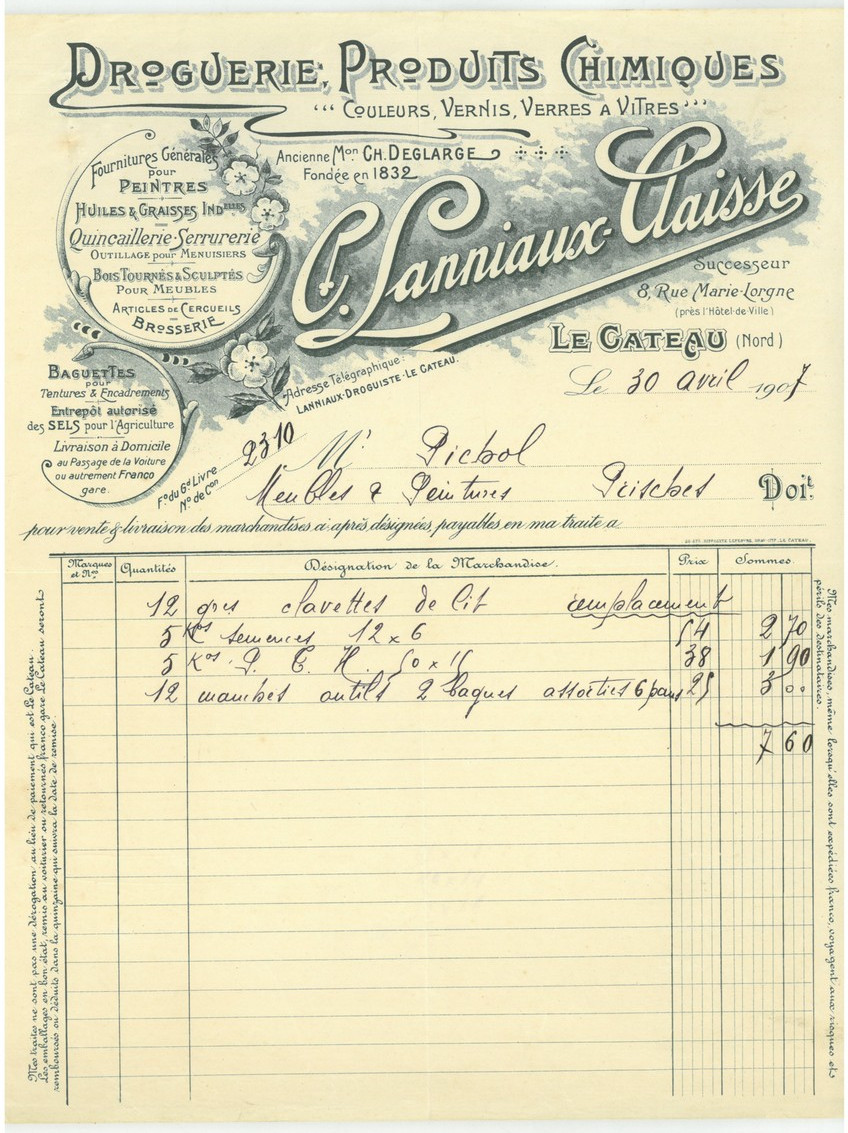 DROGUERIE, PRODUITS CHIMIQUES
COULEURS, VERNIS, VERRES A VITRES
Fournitures Générales
pour
PEINTRES
HUILES & GRAISSES INDelles
Quincaillerie-Serrurerie
OUTILLAGE pour MENUISIERS
BOIS TOURNÉS & SCULPTÉS
POUR MEUBLES
ARTICLES DE CERCUEILS
BROSSERIE
Ancienne Mon CH. DEGLARGE
Fondée en 1832
C. Lanniaux-Claisse
Successeur
8, Rue Marie-Lorgne
(près l'Hôtel-de-Ville)
LE CATEAU (Nord)
BAGUETTES
pour
Tentures & Encadrements
Entrepôt autorisé
des SELS pour l'Agriculture
Livraison à Domicile
au Passage de la Voiture
ou autrement Franco
gare.
Adresse Télégraphique:
LANNIAUX-DROGUISTE-LE CATEAU.
Le 30 avril 1907
Fo du Gd Livre
No de Con
2310
Mr Pichol
Meubles & Peintures Prisches Doit
pour vente & livraison des marchandises ci après désignées, payables en ma traite a
Marques et Nos Quantités Désignation de la Marchandise. Prix Sommes
12 gres clavettes de lit remplacement
5 Kos semences 12 x 6 54 2 70
5 Kos P. T. H. 50 x 15 38 1 90
12 manches outils 2 bagues assorties 6 pans 25 3 00
7 60
Mes traites ne sont pas une dérogation au lieu de paiement qui est Le Cateau.
Les emballages en bon état, remis au voiturier ou retournés franco gare Le Cateau seront
remboursés ou déduits dans la quinzaine qui suivra la date de remise.
Mes marchandises, même lorsqu'elles sont expédiées franco, voyagent aux risques et
périls des destinataires.